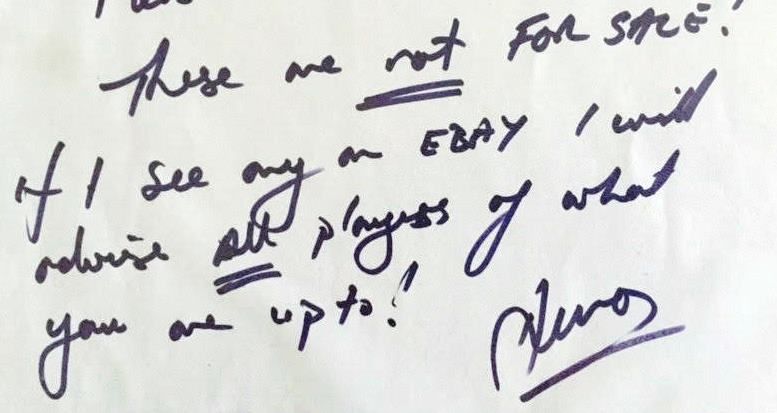 These are not FOR SALE!
If I see any on EBAY I will
advise All players of what
you are up to!